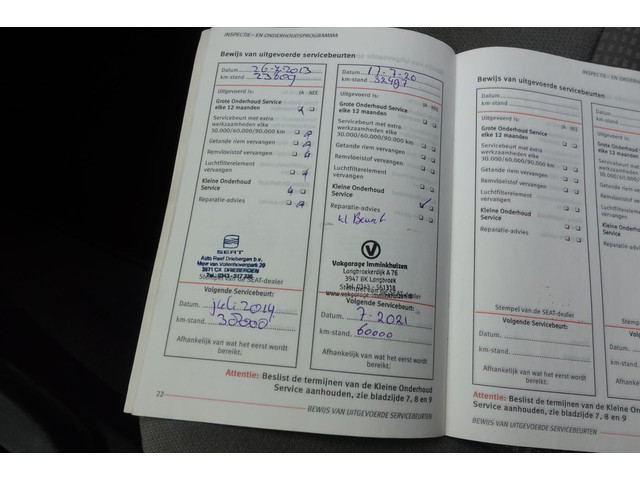 INSPECTIE- EN ONDERHOUDSPROGRAMMA
Bewijs van uitgevoerde servicebeurten
Datum 26-7-2013
km-stand 23609
Uitgevoerd is: JA NEE
Grote Onderhoud Service
elke 12 maanden
Servicebeurt met extra
werkzaamheden elke
30.000/60.000/90.000 km
Getande riem vervangen
Remvloeistof vervangen
Luchtfilterelement
vervangen
Kleine Onderhoud
Service
Reparatie-advies
SEAT
Auto Reef Driebergen b.v.
3971 CX DRIEBERGEN
Tel.: 0343 - 517 236
Stempel van de SEAT-dealer
Volgende Servicebeurt:
Datum juli 2014
km-stand 38000
Afhankelijk van wat het eerst wordt
bereikt.
Datum 17-7-20
km-stand
Uitgevoerd is: JA NEE
Grote Onderhoud Service
elke 12 maanden
Servicebeurt met extra
werkzaamheden elke
30.000/60.000/90.000 km
Getande riem vervangen
Remvloeistof vervangen
Luchtfilterelement
vervangen
Kleine Onderhoud
Service
Reparatie-advies
kl Beurt
Vakgarage Imminkhuizen
Langbroekerdijk A 76
3947 BK Langbroek
Tel. 0343 - 561318
www.vakgarage-imminkhuizen.nl
Volgende Servicebeurt:
Datum 7-2021
km-stand 60000
Afhankelijk van wat het eerst wordt
bereikt.
Attentie: Beslist de termijnen van de Kleine Onderhoud
Service aanhouden, zie bladzijde 7, 8 en 9
22
BEWIJS VAN UITGEVOERDE SERVICEBEURTEN
INSPECTIE- EN ONDERHOUDSPR
Bewijs van uitgevoerde servicebeurten
Datum
km-stand
Uitgevoerd is: JA NEE
Grote Onderhoud Service
elke 12 maanden
Servicebeurt met extra
werkzaamheden elke
30.000/60.000/90.000 km
Getande riem vervangen
Remvloeistof vervangen
Luchtfilterelement
vervangen
Kleine Onderhoud
Service
Reparatie-advies
Stempel van de SEAT-dealer
Volgende Servicebeurt:
Datum
km-stand
Afhankelijk van wat het eerst wordt
bereikt.
Attentie: Beslist de termijnen van de Klei
Service aanhouden, zie bladzijde 7, 8 en 9
BEWIJS VAN UITGEVOERDE SERVICEBEU